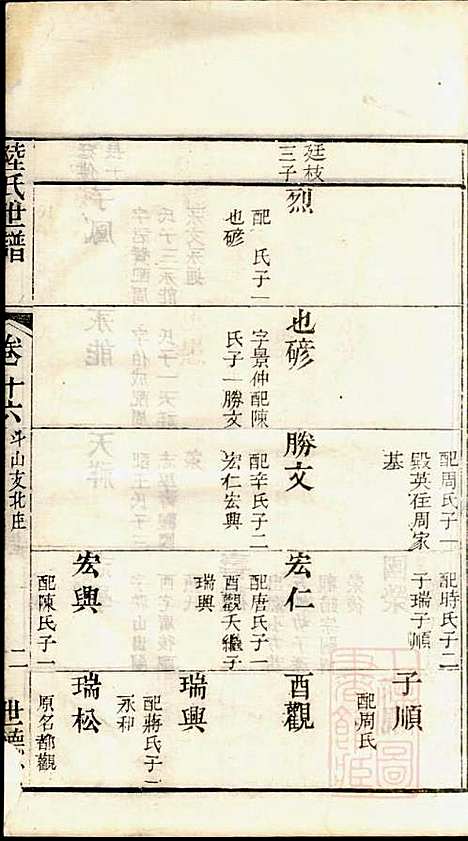 廷枝
三子
烈
配　氏子一
也碜
也碜
字景仲配陳
氏子一勝文
勝文
配辛氏子二
宏仁宏興
宏仁
配唐氏子一
酉觀夭繼子
瑞興
宏興
配陳氏子一
配周氏子一
毀英在周家
基
配時氏子二
子瑞子順
子順
配周氏
酉觀
瑞興
配蔣氏子二
永和
瑞松
原名都觀
陸氏世譜
卷十六
斗山支北庄
二
世德